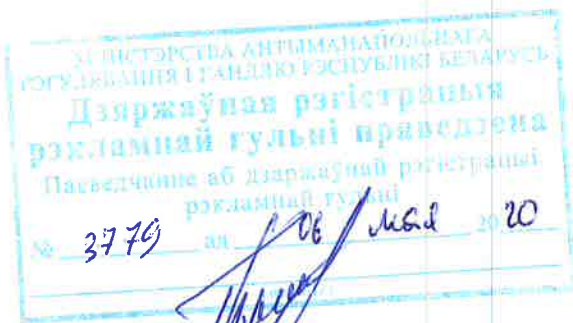 МІНІСТЭРСТВА АНТЫМАНАПОЛЬНАГА
РЭГУЛЯВАННЯ І ГАНДЛЮ РЭСПУБЛІКІ БЕЛАРУСЬ
Дзяржаўная рэгістрацыя
рэкламнай гульні праведзена
Пасведчанне аб дзяржаўнай рэгістрацыі
рэкламнай гульні
№ 3779 ад 06 мая 2020